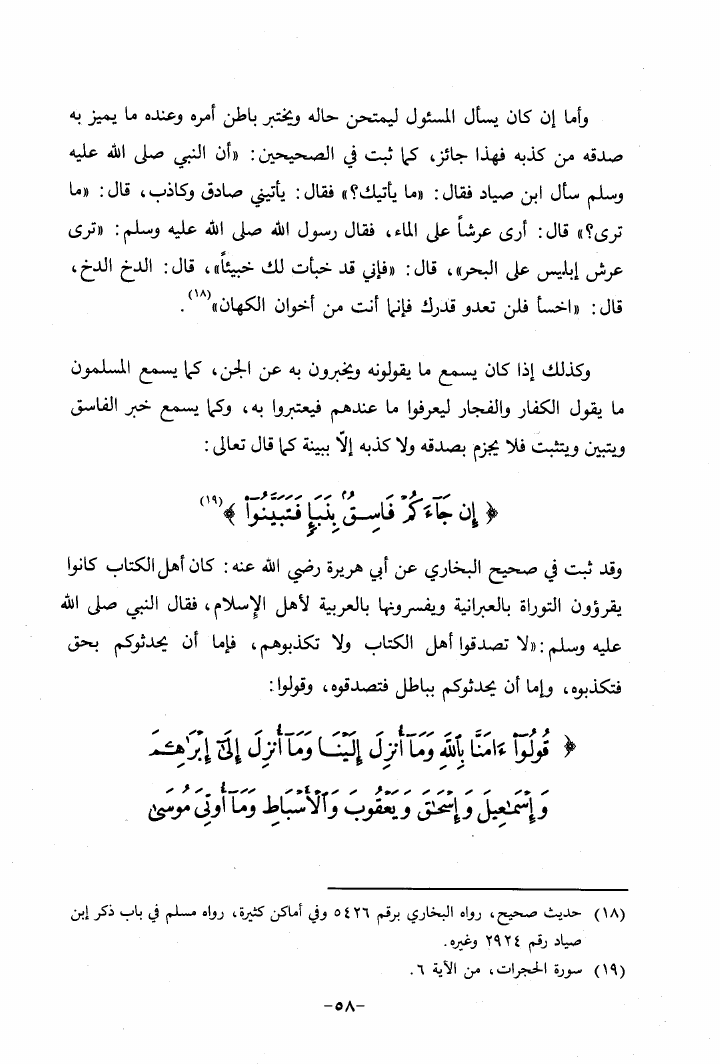 وأما إن كان يسأل المسئول ليمتحن حاله ويختبر باطن أمره وعنده ما يميز به
صدقه من كذبه فهذا جائز، كما ثبت في الصحيحين: «أن النبي صلى الله عليه
وسلم سأل ابن صياد فقال: «ما يأتيك؟» فقال: يأتيني صادق وكاذب، قال: «ما
ترى؟» قال: أرى عرشاً على الماء، فقال رسول الله صلى الله عليه وسلم: «ترى
عرش إبليس على البحر»، قال: «فإني قد خبأت لك خبيئاً»، قال: الدخ الدخ،
قال: «اخسأ فلن تعدو قدرك فإنما أنت من أخوان الكهان»(١٨).
وكذلك إذا كان يسمع ما يقولونه ويخبرون به عن الجن، كما يسمع المسلمون
ما يقول الكفار والفجار ليعرفوا ما عندهم فيعتبروا به، وكما يسمع خبر الفاسق
ويتبين ويتثبت فلا يجزم بصدقه ولا كذبه إلّا ببينة كما قال تعالى:
﴿ إِن جَآءَكُمْ فَاسِقٌۢ بِنَبَإٍ فَتَبَيَّنُوٓا۟ ﴾(١٩)
وقد ثبت في صحيح البخاري عن أبي هريرة رضي الله عنه: كان أهل الكتاب كانوا
يقرؤون التوراة بالعبرانية ويفسرونها بالعربية لأهل الإسلام، فقال النبي صلى الله
عليه وسلم: «لا تصدقوا أهل الكتاب ولا تكذبوهم، فإما أن يحدثوكم بحق
فتكذبوه، وإما أن يحدثوكم بباطل فتصدقوه، وقولوا:
﴿ قُولُوٓا۟ ءَامَنَّا بِٱللَّهِ وَمَآ أُنزِلَ إِلَيْنَا وَمَآ أُنزِلَ إِلَىٰٓ إِبْرَٰهِـۧمَ
وَإِسْمَٰعِيلَ وَإِسْحَٰقَ وَيَعْقُوبَ وَٱلْأَسْبَاطِ وَمَآ أُوتِيَ مُوسَىٰ
(١٨) حديث صحيح، رواه البخاري برقم ٥٤٢٦ وفي أماكن كثيرة، رواه مسلم في باب ذكر إبن
صياد رقم ٢٩٢٤ وغيره.
(١٩) سورة الحجرات، من الآية ٦.
-٥٨-